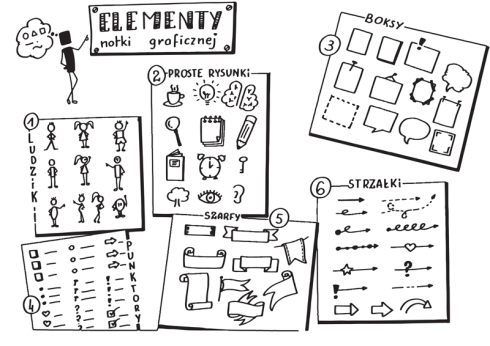 ELEMENTY
notki graficznej
1
LUDZIKI
2 PROSTE RYSUNKI
3 BOKSY
4
PUNKTORY
SZARFY 5
6 STRZAŁKI